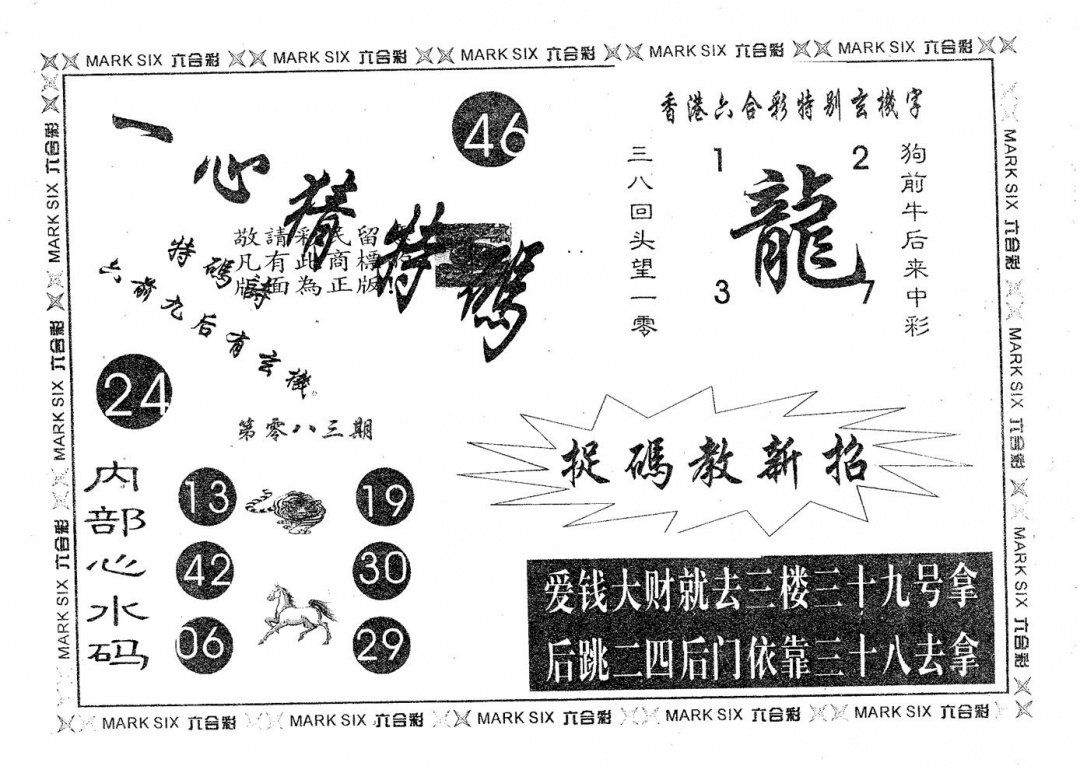 MARK SIX 六合彩 MARK SIX 六合彩 MARK SIX 六合彩 MARK SIX 六合彩 MARK SIX 六合彩
MARK SIX 六合彩 MARK SIX 六合彩 MARK SIX 六合彩
一心猜特碼
46
敬請彩民留
凡有此商標
版面為正版!
特碼詩
六前九后有玄機。
24
第零八三期
内部心水码
13 19
42 30
06 29
香港六合彩特别玄機字
三八回头望一零
1 2
龍
3 7
狗前牛后来中彩
捉碼教新招
爱钱大财就去三楼三十九号拿
后跳二四后门依靠三十八去拿
MARK SIX 六合彩 MARK SIX 六合彩 MARK SIX 六合彩
MARK SIX 六合彩 MARK SIX 六合彩 MARK SIX 六合彩 MARK SIX 六合彩 MARK SIX 六合彩